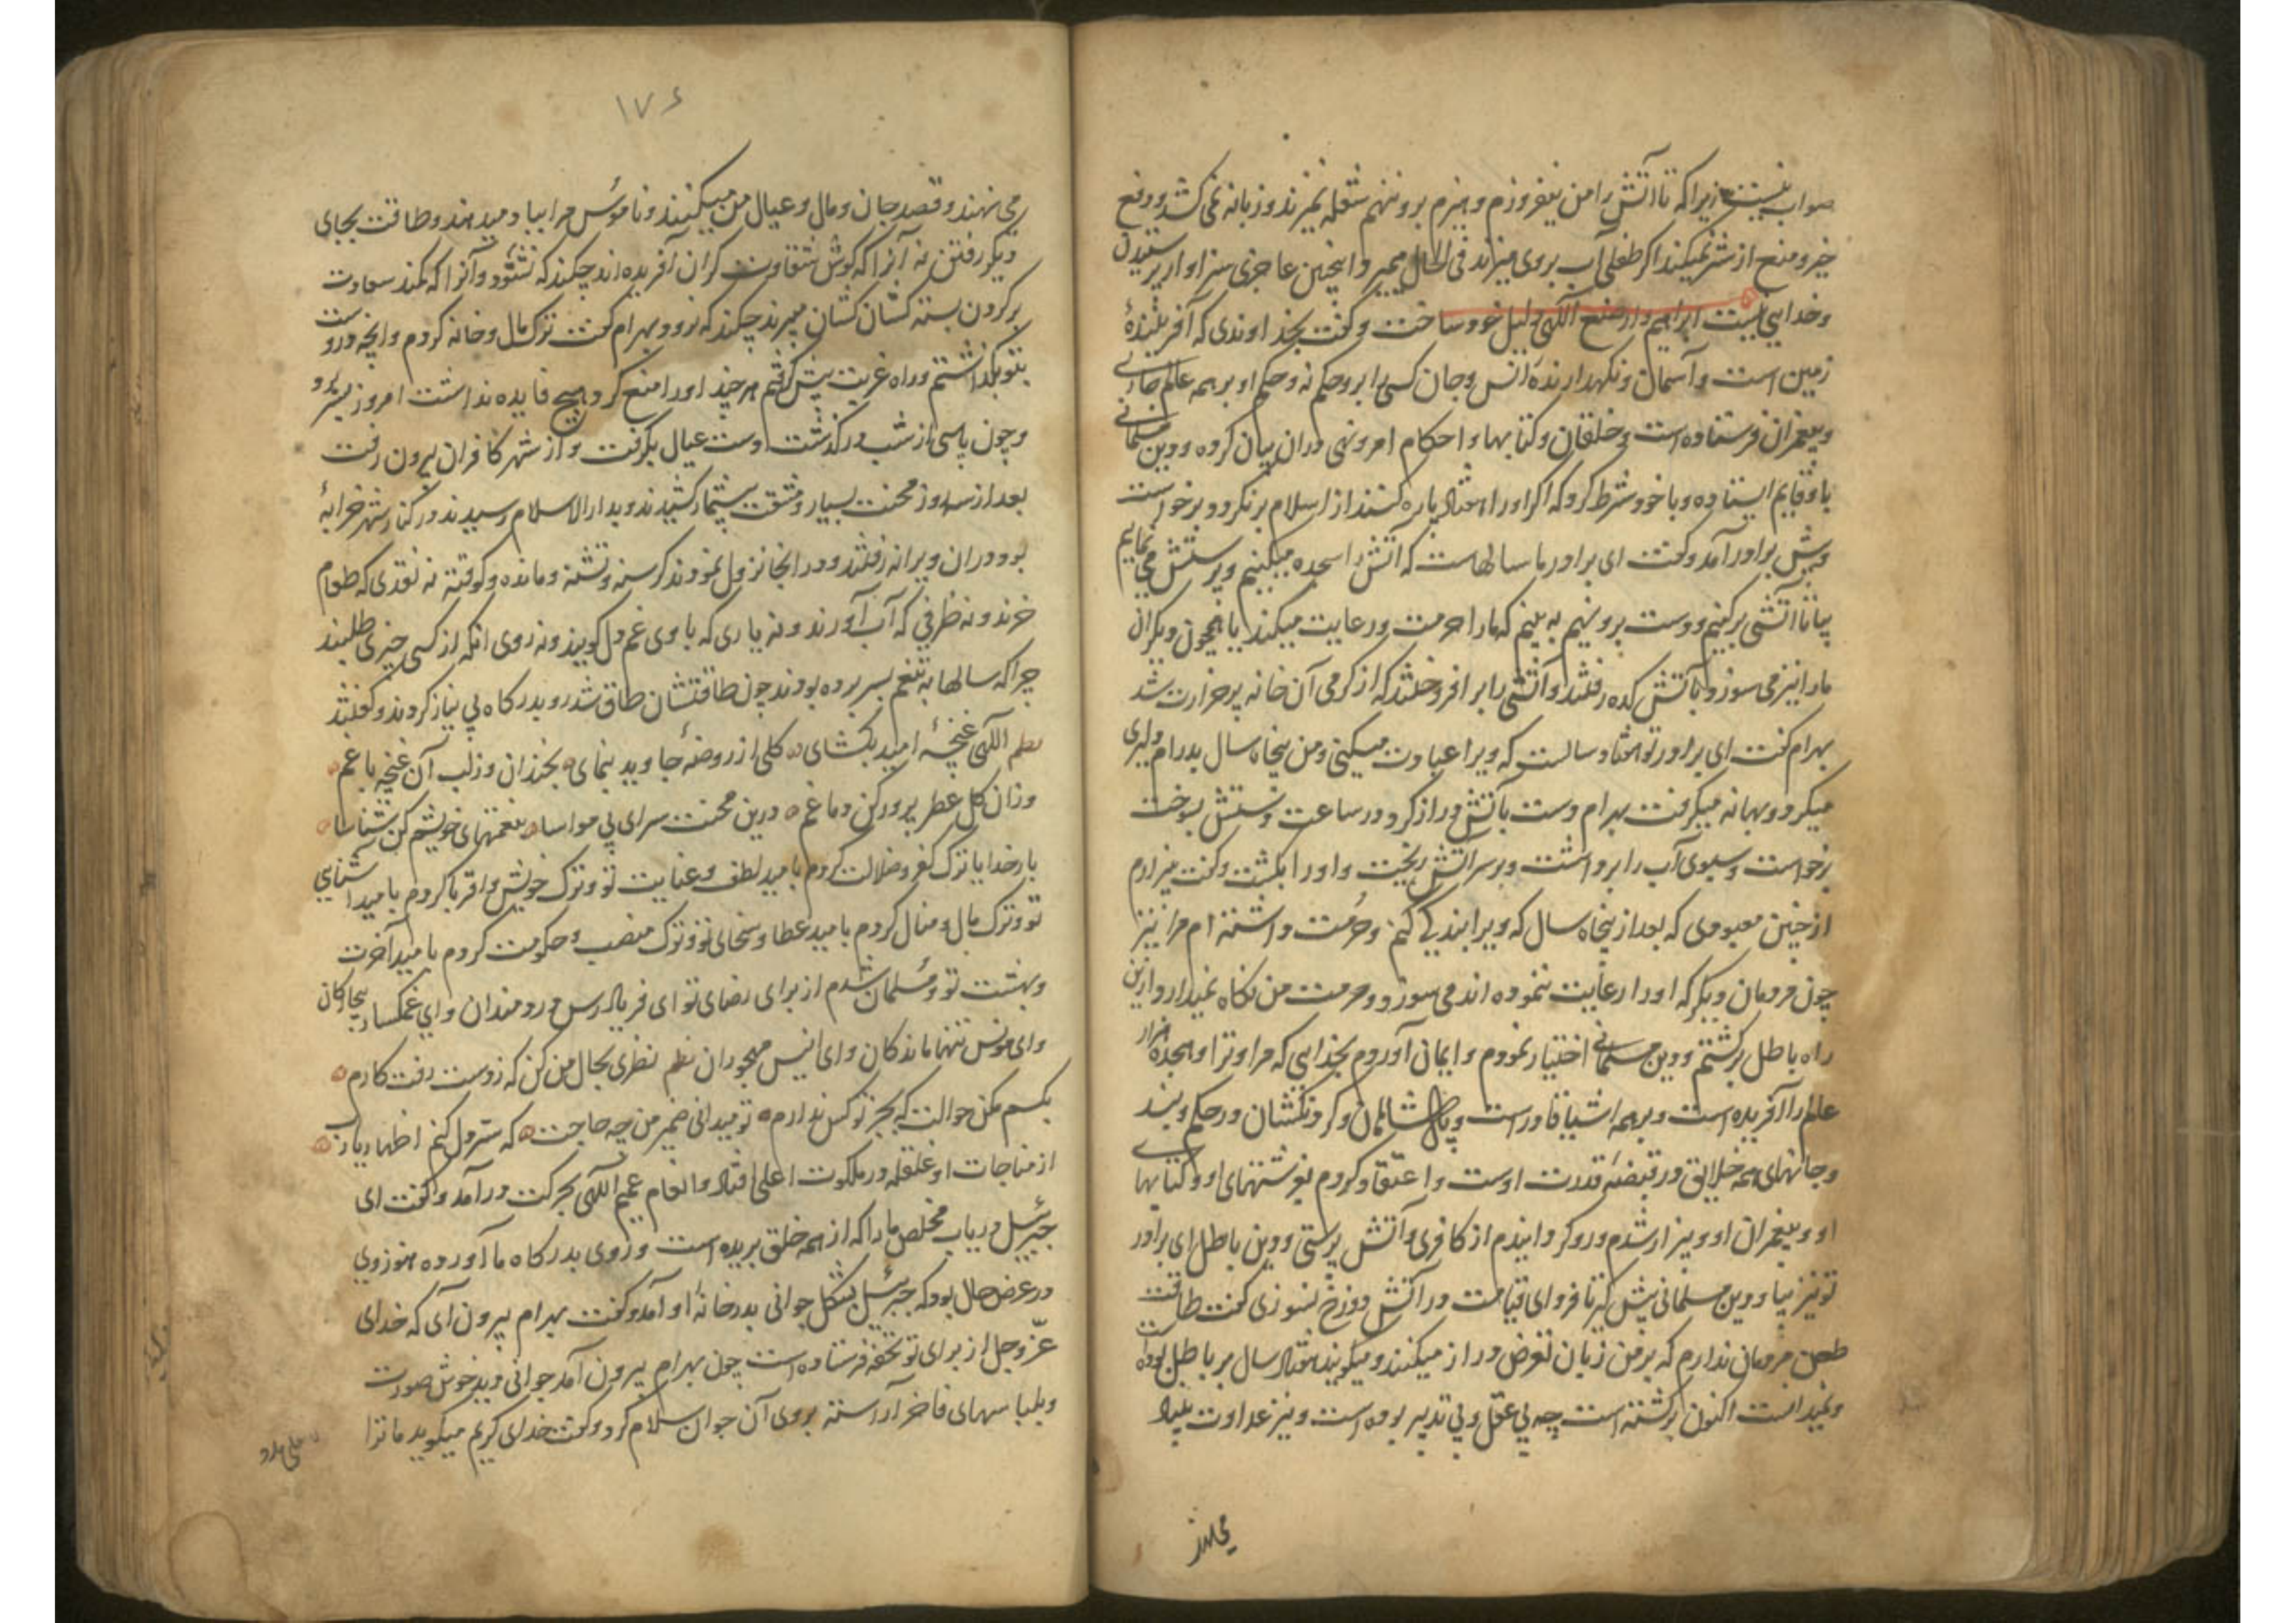 صواب نیست زیرا که تا آتش را من نیفروزم و هیزم برو ننهم شعله نمیزند و زبانه نمی کشد و دفع
خیر و منع از شر نمیکند اگر طفلی آب بر وی میزند فی الحال میمیرد اینچنین عاجزی سزاوار پرستیدن
و خدایی نیست ابراهیم وار صنع آلهی دلیل خود ساخت و گفت بخداوندی که آفرینندهٔ
زمین است و آسمان و نگهدارندهٔ انس و جان کسی را برو حکم نه و حکم او بر همه عالم جاری
و پیغمبران فرستاده است و خلقان و کتابها و احکام امر و نهی در ان بیان کرده و دین مسلمانی
باو قایم ایستاده و با خود شرط کرد که اگر او را هفتاد پاره کنند از اسلام برنگردد برخواست
و پیش برادر آمد و گفت ای برادر ما سالهاست که آتش را سجده میکنیم و پرستش می نماییم
بیا تا آتشی برکنیم و دست برو نهیم به بینیم که ما را حرمت و رعایت میکند یا همچون دیگران
ما را نیز می سوزد بآتش کده رفتند و آتشی را برافروختند که از گرمی آن خانه پر حرارت شد
بهرام گفت ای برادر تو هفتاد سالست که ویرا عبادت میکنی و من پنجاه سال بدرام دلیری
میکرد و بهانه میگرفت بهرام دست بآتش دراز کرد در ساعت دستش بسوخت
برخواست و سبوی آب را برداشت و بر سر آتش ریخت و او را بکشت و گفت بیزارم
از چنین معبودی که بعد از پنجاه سال که ویرا بندگی کنم و حرمت داشته ام مرا نیز
چون مردمان دیگر که او را رعایت ننموده اند می سوزد و حرمت من نگاه نمیدارد ازین
راه باطل برگشتم و دین مسلمانی اختیار نمودم و ایمان آوردم بخدایی که مرا و ترا و هجده هزار
عالم را آفریده است و بر همه اشیا قادرست و پادشاهان و گردنکشان در حکم ویند
و جانهای همه خلایق در قبضهٔ قدرت اوست و اعتقاد کردم بفرشتهای او و کتابهای
او و پیغمبران او و بیزار شدم و رو گردانیدم از کافری و آتش پرستی و دین باطل ای برادر
تو نیز بیا و دین مسلمانی پیش گیر تا فردای قیامت در آتش دوزخ نسوزی گفت طاقت
طعن مردمان ندارم که بر من زبان تعرض دراز میکنند و میگویند هفتاد سال بر باطل بوده
و نمیدانست اکنون برگشته است چه بی عقل و بی تدبیر بوده است و نیز عداوت بنیاد
۱۷۶
می نهند و قصد جان و مال و عیال من میکنند و ناموس مرا بباد میدهند و طاقت بجای
دیگر رفتن نه آنرا که گوش شقاوت گران آفریده اند چکند که نشنود و آنرا که کمند سعادت
بر گردن بسته کشان کشان میبرند چکند که نرود بهرام گفت ترک مال و خانه کردم و آنچه دروست
بتو بگذاشتم و راه غربت پیش گرفتم هر چند او را منع کرد هیچ فایده نداشت امروز بسر برد
و چون پاسی از شب درگذشت دست عیال بگرفت و از شهر کافران بیرون رفت
بعد از سه روز محنت بسیار و مشقت بیشمار کشیدند و بدار الاسلام رسیدند در کنار شهر خرابهٔ
بود در ان ویرانه رفتند و در آنجا نزول نمودند گرسنه و تشنه و مانده و کوفته نه نقدی که طعام
خرند و نه ظرفی که آب آورند و نه یاری که با وی غم دل گویند و نه روی انکه از کسی چیزی طلبند
چرا که سالها به تنعم بسر برده بودند چون طاقتشان طاق شد رو بدرگاه بی نیاز کردند و گفتند
نظم الهی غنچهٔ امید بکشای گلی از روضهٔ جاوید بنمای بخندان وز لب آن غنچه باغم
وزان گل عطر پرور کن دماغم درین محنت سرای بی مواسا بنعمتهای خویشم کن شناسا
بار خدایا ترک کفر و ضلالت کردم بامید لطف و عنایت تو و ترک خویش و اقربا کردم بامید آشنایی
تو و ترک مال و منال کردم بامید عطا و سخای تو و ترک منصب و حکومت کردم بامید آخرت
و بهشت تو و مسلمان شدم از برای رضای تو ای فریاد رس دردمندان و ای غمگسار بیچارگان
و ای مونس تنها ماندگان و ای انیس مهجوران نظم نظری بحال من کن که ز دست رفت کارم
بکسم مکن حوالت که بجز تو کس ندارم تو میدانی ضمیر من چه حاجت که سر دل کنم اظهار یا رب
از مناجات او غلغله در ملکوت اعلی افتاد و انعام عمیم آلهی بحرکت درآمد و گفت ای
جبرئیل دریاب مخلص ما را که از همه خلق بریده است و روی بدرگاه ما آورده هنوز وی
در عرض حال بود که جبرئیل بشکل جوانی بدر خانهٔ او آمد و گفت بهرام بیرون آی که خدای
عز و جل از برای تو تحفه فرستاده است چون بهرام بیرون آمد جوانی دید خوش صورت
و بلباسهای فاخر آراسته بروی آن جوان سلام کرد و گفت خدای کریم میگوید ما ترا